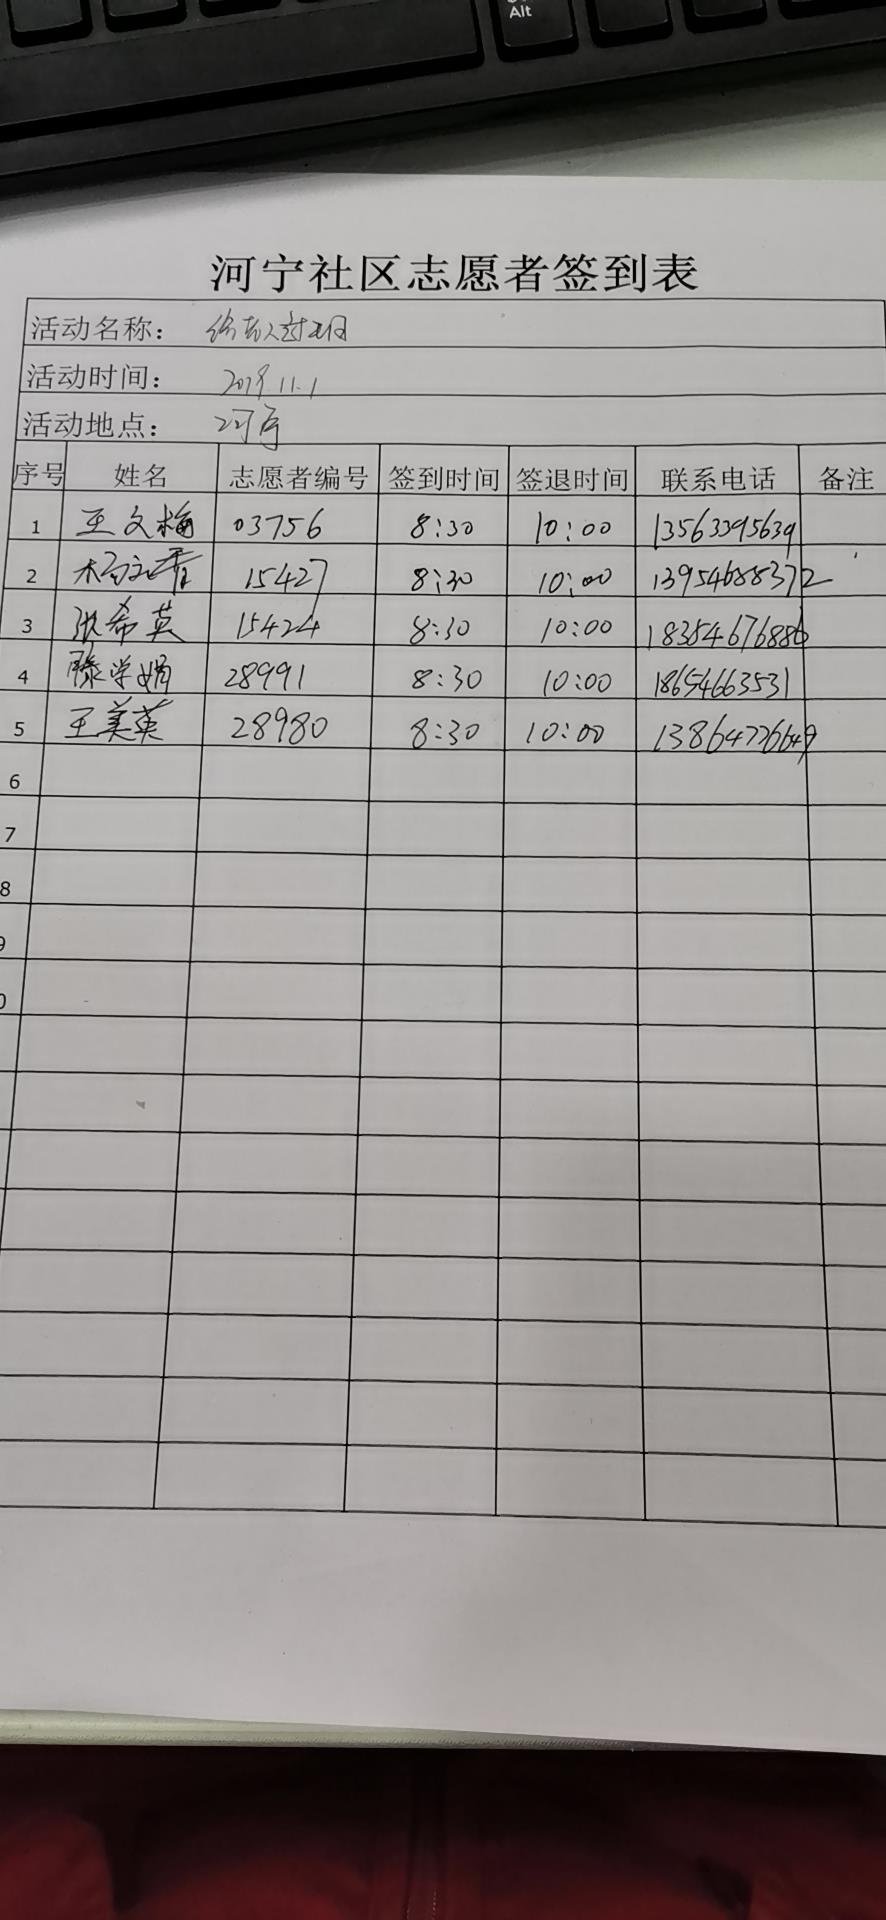 Alt
河宁社区志愿者签到表
活动名称： 给老人过生日
活动时间： 2019.11.1
活动地点： 河宁
序号 姓名 志愿者编号 签到时间 签退时间 联系电话 备注
1 王文梅 03756 8:30 10:00 13563395639
2 15427 8:30 10:00 13954688372
3 张希英 15424 8:30 10:00 18354676886
4 滕学娟 28991 8:30 10:00 18654663531
5 王美英 28980 8:30 10:00 13864726649
6
7
8
9
0